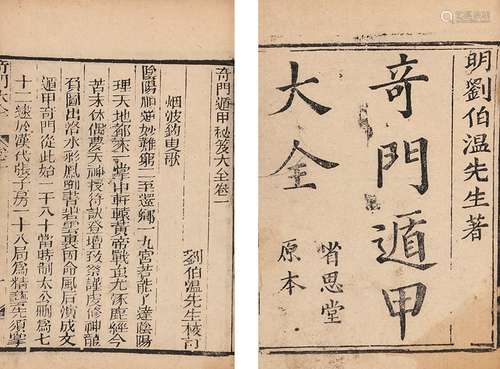 明劉伯溫先生著
奇門遁甲
大全
省思堂
原本
奇門遁甲秘笈大全卷一
烟波釣叟歌
劉伯溫先生校訂
陰陽順逆妙難窮二至還鄉一九宮若能了達陰陽
理天地都來一掌中軒轅黃帝戰蚩尤涿鹿經今
苦未休偶夢天神授符訣登壇致祭謹虔修神龍
負圖出洛水彩鳳啣書碧雲裏因命風后演成文
遁甲奇門從此始一千八十當時制太公刪爲七
十二逮於漢代張子房一十八局爲精藝先須掌
奇門大全